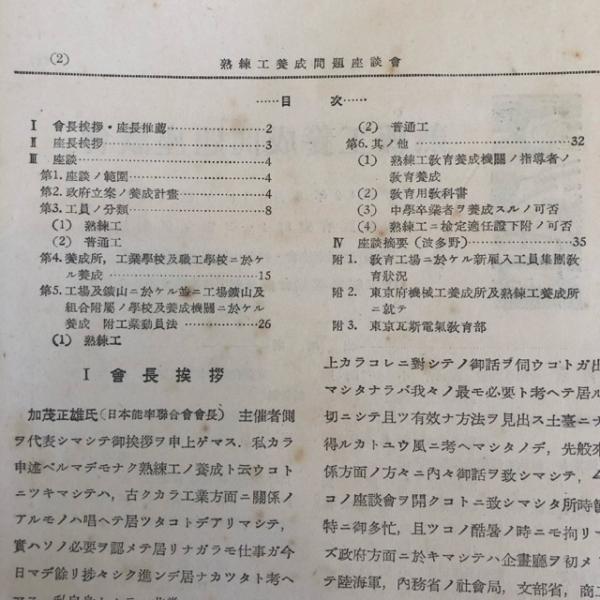 (2)
熟練工養成問題座談會
……目 次……
Ⅰ 會長挨拶・座長推薦……………2
Ⅱ 座長挨拶……………3
Ⅲ 座談……………4
第1. 座談ノ範圍……………4
第2. 政府立案ノ養成計畫……………4
第3. 工員ノ分類……………8
(1) 熟練工
(2) 普通工
第4. 養成所, 工業學校及職工學校ニ於ケ
ル養成……………15
第5. 工場及鑛山ニ於ケル並ニ工場鑛山及
組合附屬ノ學校及養成機關ニ於ケル
養成 附工業動員法……………26
(1) 熟練工
(2) 普通工
第6. 其ノ他……………32
(1) 熟練工敎育養成機關ノ指導者ノ
敎育養成
(2) 敎育用敎科書
(3) 中學卒業者ヲ養成スルノ可否
(4) 熟練工ニ檢定適任證下附ノ可否
Ⅳ 座談摘要 (波多野)……………35
附1. 敎育工場ニ於ケル新雇入工員集團敎
育狀況
附2. 東京府機械工養成所及熟練工養成所
ニ就テ
附3. 東京瓦斯電氣敎育部
Ⅰ 會長挨拶
加茂正雄氏 (日本能率聯合會會長) 主催者側
ヲ代表シマシテ御挨拶ヲ申上ゲマス. 私カラ
申述ベルマデモナク熟練工ノ養成ト云ウコト
ニツキマシテハ, 古クカラ工業方面ニ關係ノ
アルモノハ唱ヘテ居ツタコトデアリマシテ,
實ハソノ必要ヲ認メテ居リナガラモ仕事ガ今
日マデ餘リ捗々シク進ンデ居ナカツタト考ヘ
上カラコレニ對シテノ御話ヲ伺ウコトガ出
マシタナラバ我々ノ最モ必要ト考ヘテ居ル
切ニシテ且ツ有效ナ方法ヲ見出ス土臺ニナ
得ルカトユウ風ニ考ヘマシタノデ, 先般來
係方面ノ方々ニ內々御話ヲ致シマシテ, 今
コノ座談會ヲ開クコトニ致シマシタ所時節
特ニ御多忙, 且ツコノ酷暑ノ時ニモ拘リ
ズ政府方面ニ於キマシテハ企畫廳ヲ初メ
テ陸海軍, 內務省ノ社會局, 文部省, 商工